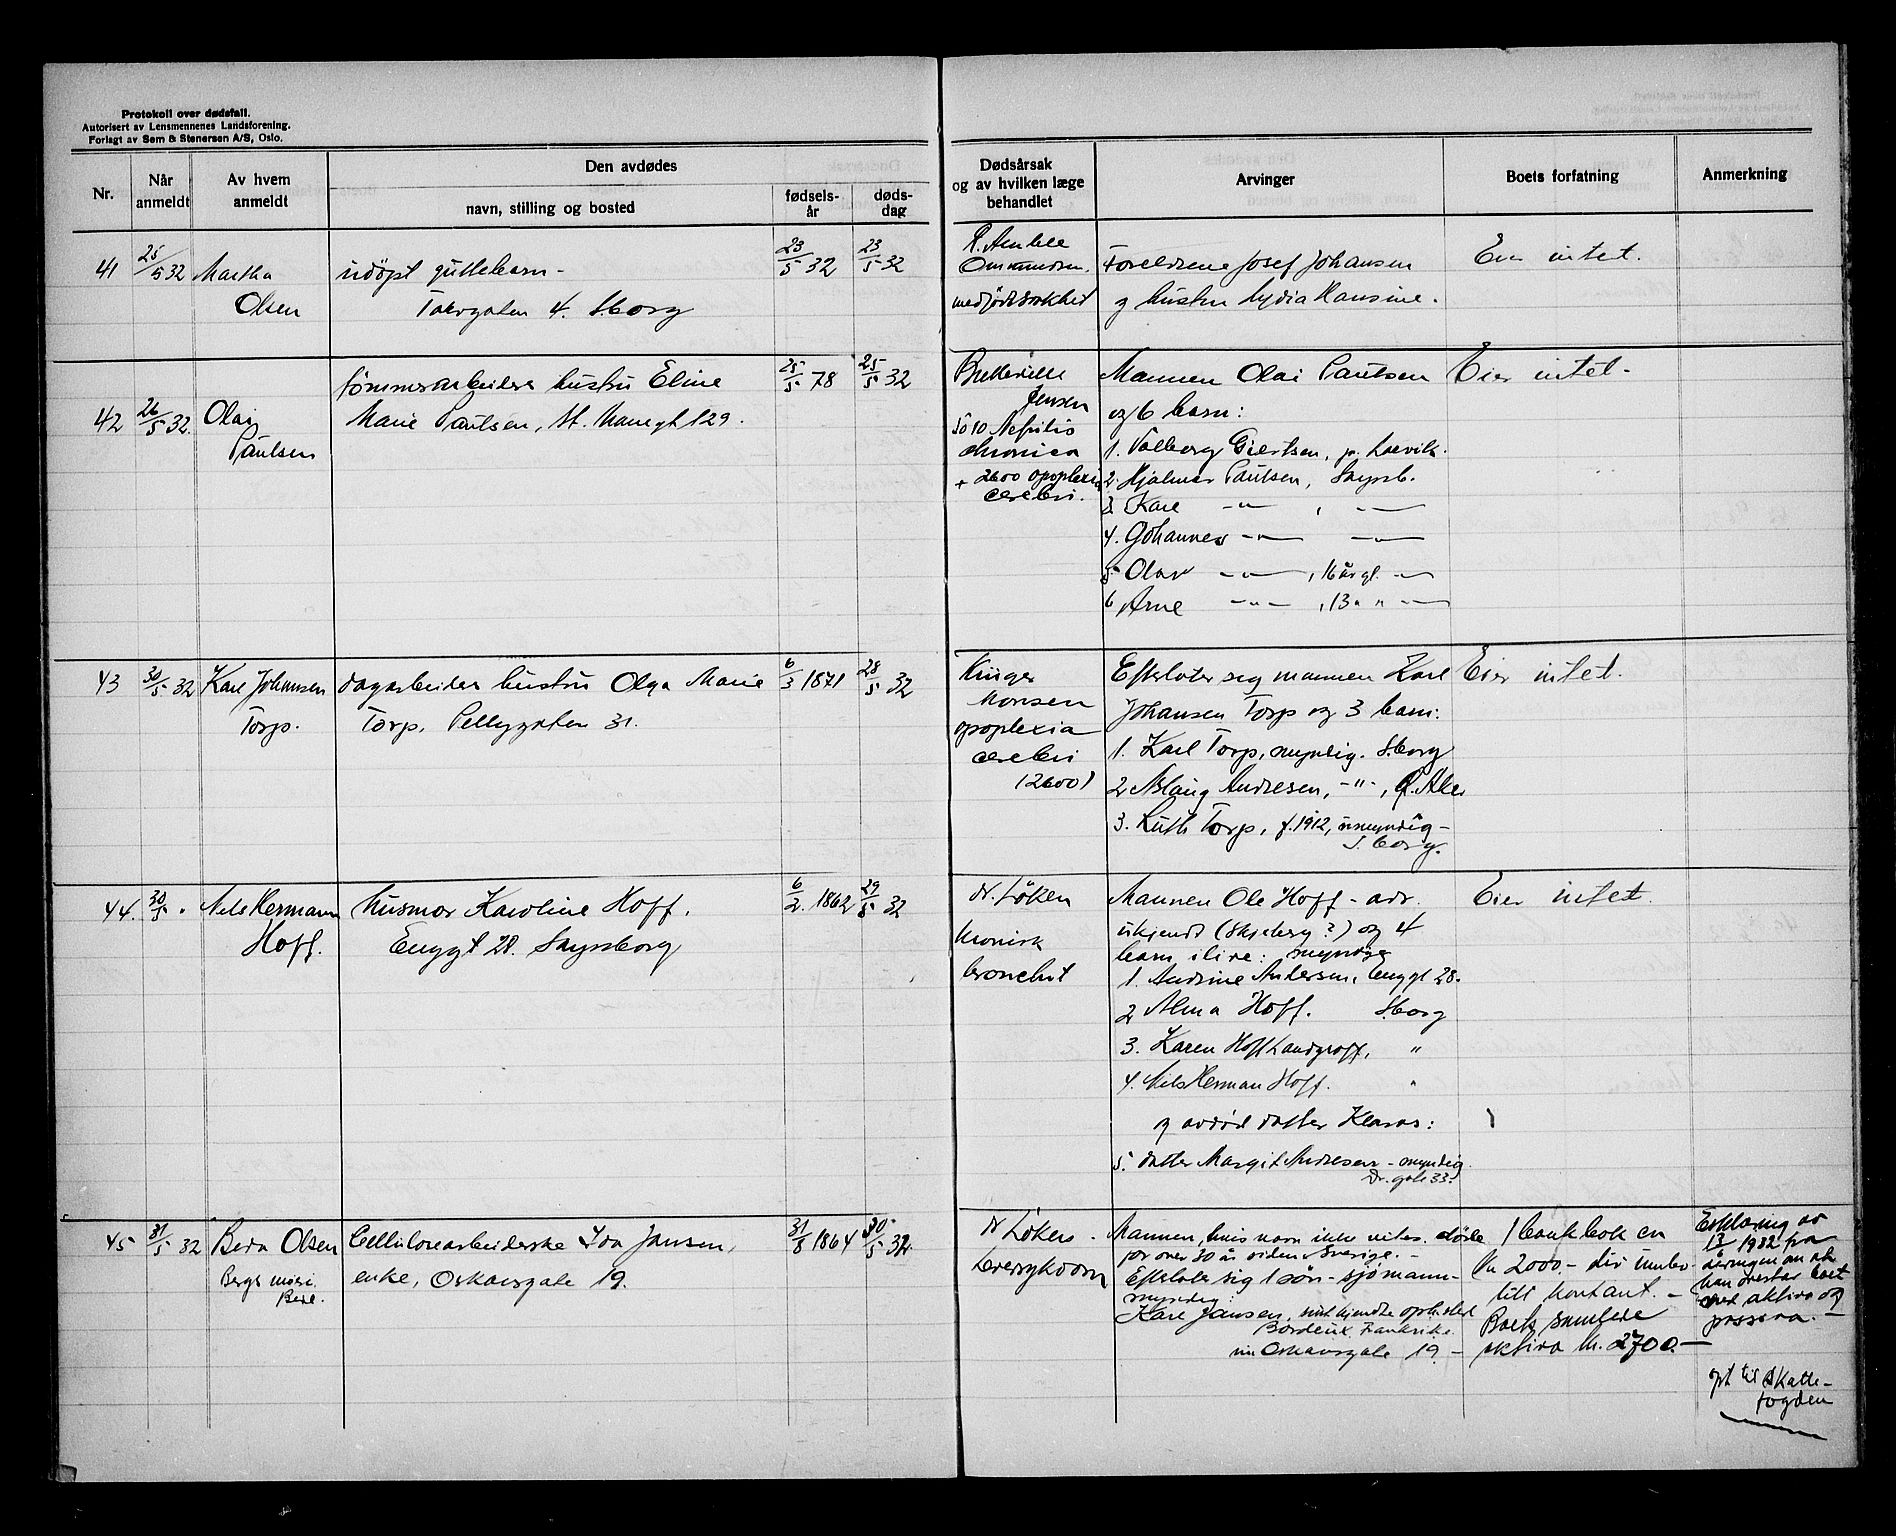 Protokoll over dødsfall.
Autorisert av Lensmennenes Landsforening.
Forlagt av Sem & Stenersen A/S, Oslo.
Nr.
Når anmeldt
Av hvem anmeldt
Den avdødes
navn, stilling og bosted
fødselsår
dødsdag
Dødsårsak
og av hvilken læge
behandlet
Arvinger
Boets forfatning
Anmerkning
41 25/5 32 Martha
Olsen
udöpt guttebarn -
Torvgaten 4. S.borg
23/5 32
23/5 32
medfödt svakhet
Foreldrene Josef Johansen
og hustru Lydia Hansine.
Eier intet.
42 26/5 32. Olai
Paulsen
tömmerarbeiders hustru Eline
Marie Paulsen, St. Mariegt 129.
25/5 78
25/5 32
Jensen
Nefritis
chronica
+ 2600 apoplexia
cerebri.
Mannen Olai Paulsen
og 6 barn:
1. Valborg Giertsen, pr. Larvik.
2. Hjalmar Paulsen, Sarpsb.
3 Kare -"- , -"-
4. Johannes -"- -"-
5 Olav -"- , 16 år gl. -"-
6 Arne -"- , 13 " " -"-
Eier intet.
43 30/5 32 Karl Johansen
Torp.
dagarbeider hustru Olga Marie
Torp, Pellygaten 31.
6/3 1871
28/5 32
Krüger
Monsen
apoplexia
cerebri
(2600)
Efterlater sig mannen Karl
Johansen Torp og 3 barn:
1. Karl Torp, myndig. S.borg
2 Aslaug Andresen, -"-, Ø. Aker
3. Ruth Torp, f. 1912, umyndig -
S.borg.
Eier intet.
44. 30/5 " Nils Hermann
Hoff.
husmor Karoline Hoff,
Enggt 28. Sarpsborg
6/2. 1862
29/5 32
dr. Löken
kronisk
bronchit
Mannen Ole Hoff - adr.
ukjendt (Skjeberg ?) og 4
barn ilive: myndige
1. Andrine Andersen, Enggt 28.
2 Alma Hoff. S.borg
3. Karen Hoff Landgroff, "
4. Nils Herman Hoff. "
og avdöd datter Klaras:
5. datter Margit Andresen - myndig
gate 33.
Eier intet.
45 31/5 32 Beda Olsen
Cellulosearbeiderske Ida Jansen,
enke, Oskarsgate 19.
31/8 1864
30/5 32.
dr Löken.
Leversykdom
Mannen, hvis navn ikke vites. döde
for over 30 år siden i Sverige. -
Efterlater sig 1 sön - sjömann -
myndig:
Karl Jansen, sist kjendte opholdsted
Bordeux Frankrike.
nu Oskarsgate 19. -
1 bankbok en
kr 2000.- div innbo
litt kontant. -
Boets samlede
aktiva kr. 2700.-
Erklæring av
1932 fra
arvingen om at
han overtar boet
med aktiva og
passiva. -
opt til skatte-
fogden